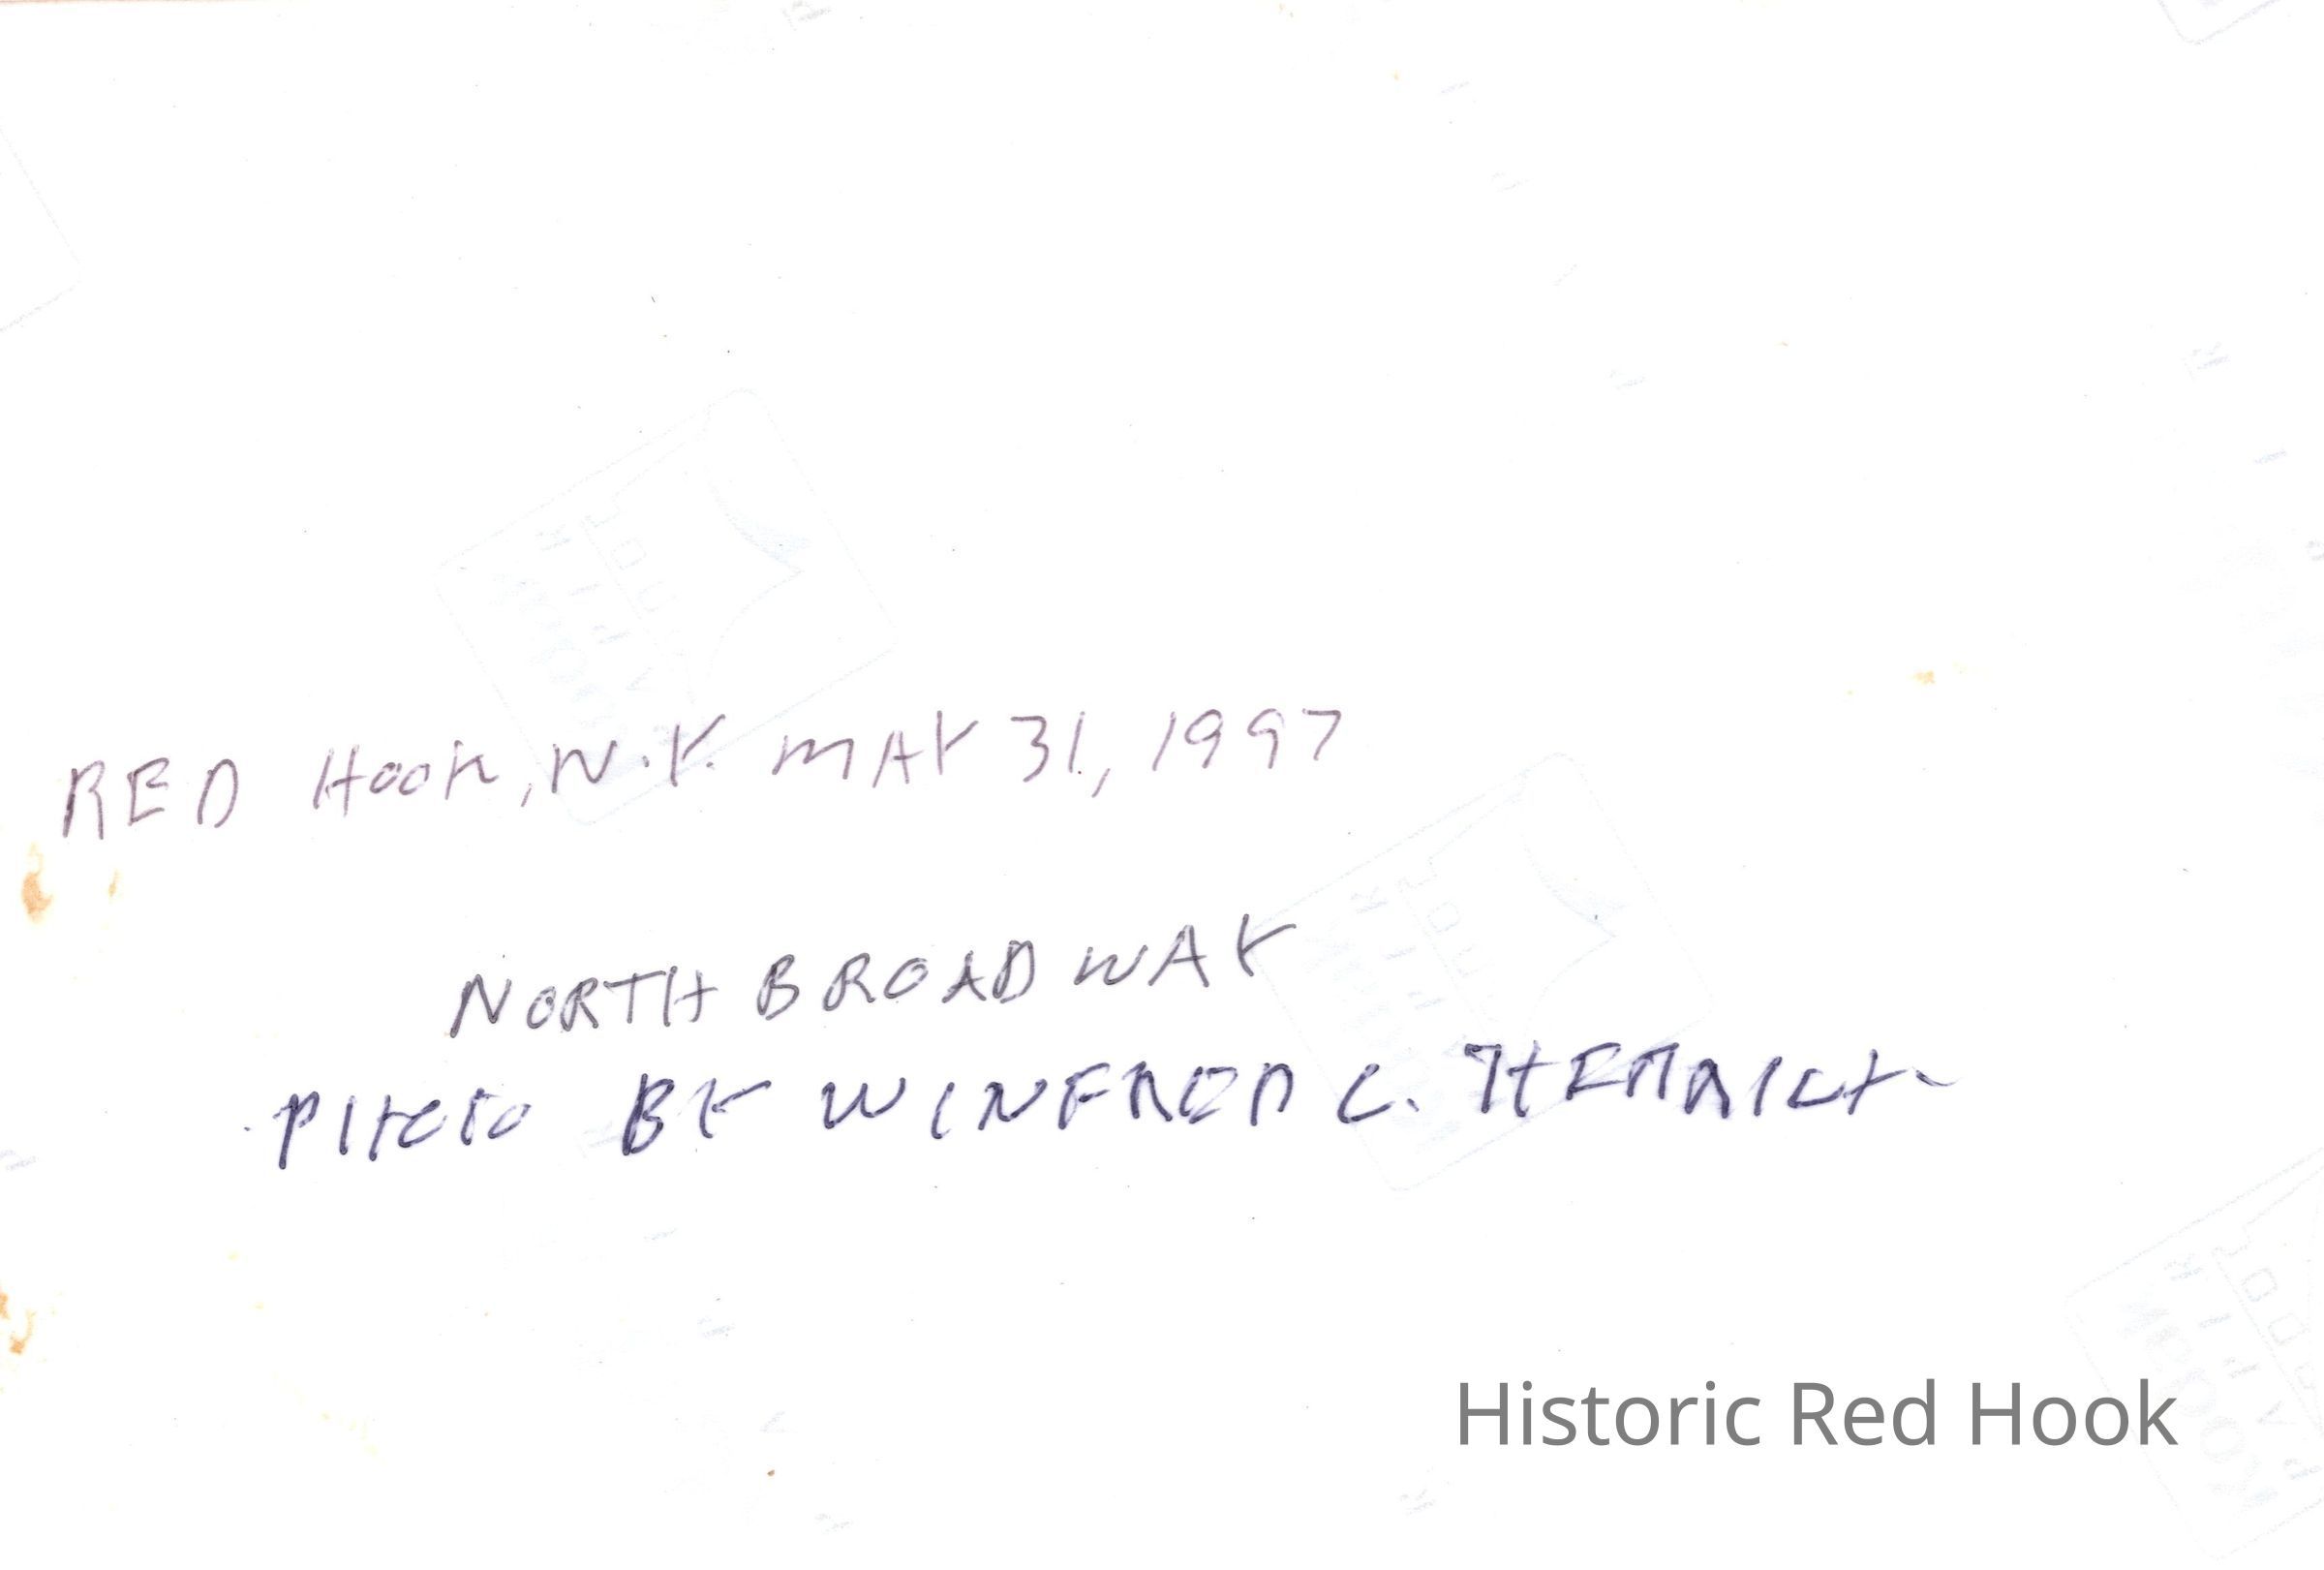 RED HOOK, N.Y. MAY 31, 1997
NORTH BROADWAY
PHOTO BY WINFRED C.
Historic Red Hook